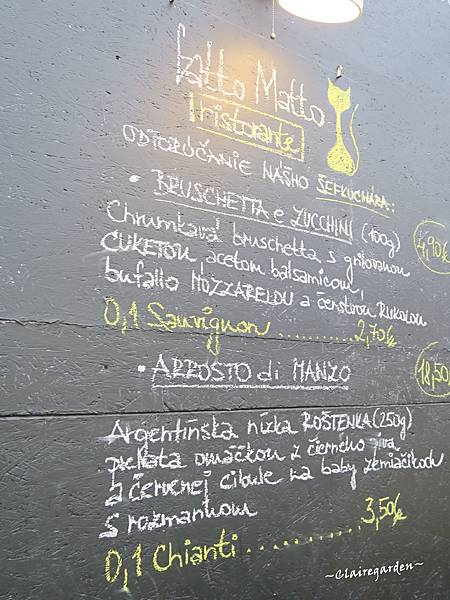 Gatto Matto
ristorante
ODPORÚČANIE NÁŠHO ŠÉFKUCHÁRA:
• BRUSCHETTA e ZUCCHINI (100g)
Chrumkavá bruschetta s grilovanou 4,90€
CUKETOU, acetom balsamicom,
bufallo MOZZARELOU a čerstvou RUKOLOU
0,1 Sauvignon .......... 2,70€
• ARROSTO di MANZO 18,50
Argentínska nízka ROŠTENKA (250g)
omáčkou z čierného piva
a červenej cibule na baby zemiačikoch
s rozmarínom
0,1 Chianti .......... 3,50€
~Clairegarden~